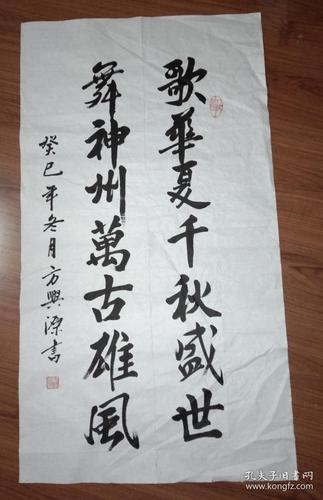 歌華夏千秋盛世
舞神州萬古雄風
癸巳年冬月方興源書
孔夫子旧書网
www.kongfz.com